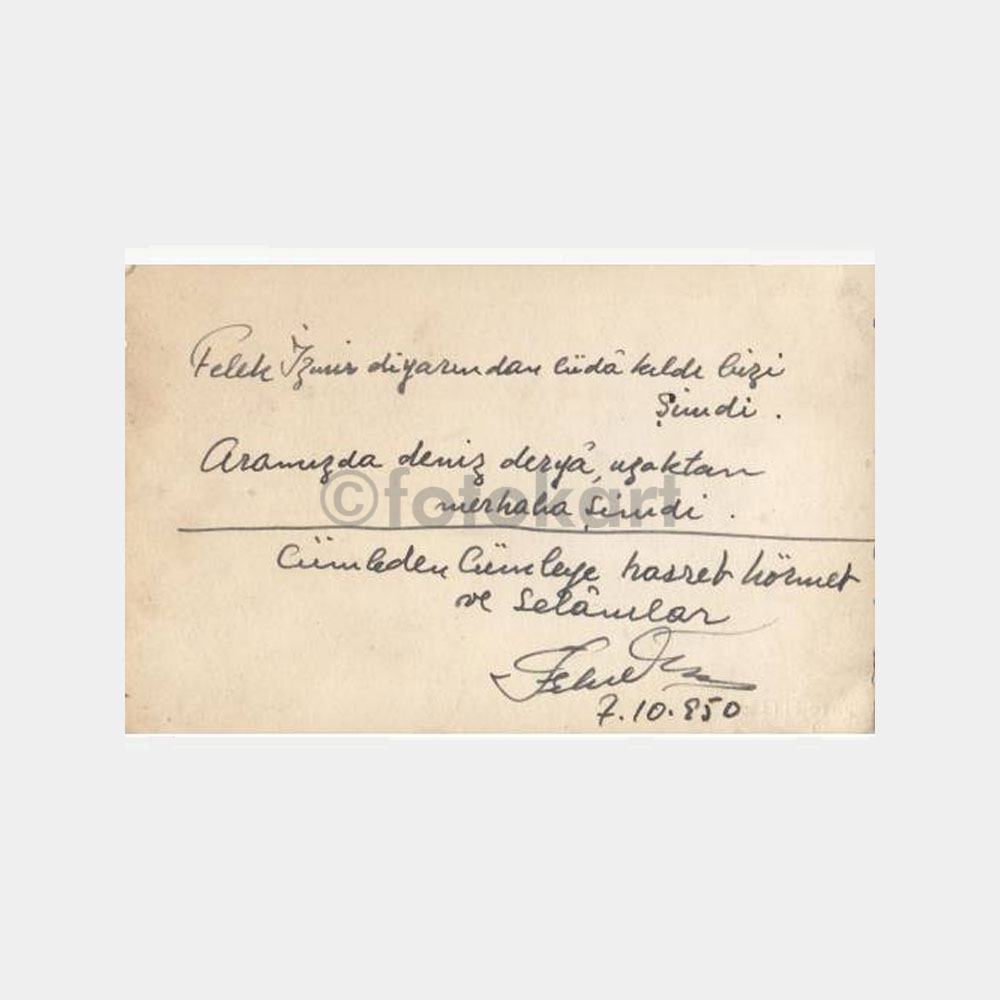 Felek İzmir diyarından cüdâ kıldı bizi
Şimdi.
Aramızda deniz deryâ, uzaktan
©fotokart
merhaba Şimdi.
Cümleden Cümleye hasret hörmet
ve Selâmlar
7.10.950